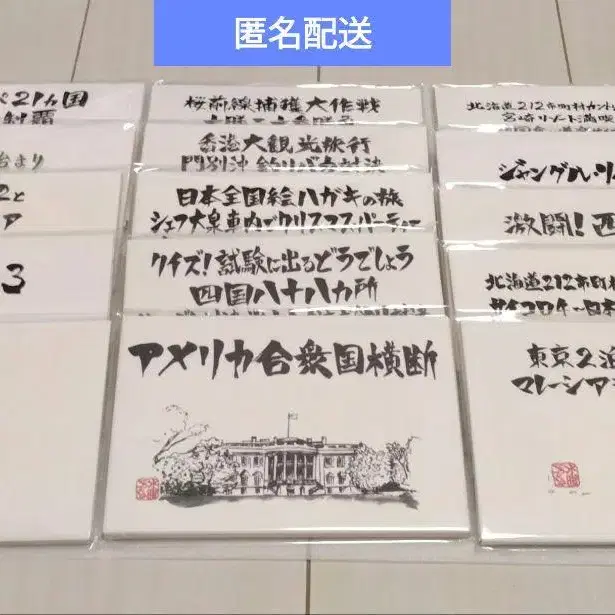 匿名配送
21ヵ国
桜前線捕獲大作戦
北海道212市町村カント
宮崎リゾート満喫
香港大観光旅行
門別沖 釣りバカ対決
より
ジャングル・リ
日本全国絵ハガキの旅
シェフ大泉車内でクリスマス・パーティー
2と
ア
激闘!西
クイズ!試験に出るどうでしょう
四国八十八ヵ所
3
北海道212市町村
サイコロ6~日本
アメリカ合衆国横断
東京2泊
マレーシア